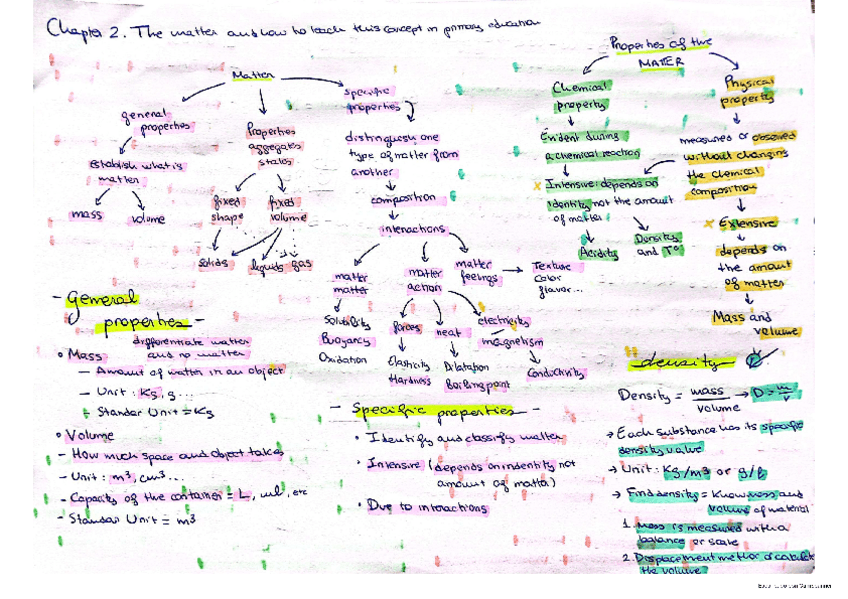 Chapter 2. The matter and how to teach this concept in primary education
Matter
general
properties
Establish what is
matter
mass
volume
Properties
aggregate
states
fixed
shape
fixed
volume
solids
liquids
gas
specific
properties
distinguish one
type of matter from
another
composition
interactions
matter
matter
Solubility
Buoyancy
Oxidation
matter
action
forces
Elasticity
Hardness
heat
Dilatation
Boiling point
electricity
magnetism
Conductivity
matter
feelings
Texture
color
flavor...
Properties of the
MATTER
Chemical
property
Evident during
a chemical reaction
x Intensive: depends on
identity not the amount
of matter
Acidity
Density
and Tº
Physical
property
measured or observed
without changing
the chemical
composition
x Extensive
depends on
the amount
of matter
Mass and
volume
- General
properties -
differentiate matter
and no matter
• Mass
- Amount of matter in an object
- Unit: Kg, g...
- Standar Unit = Kg
• Volume
- How much space and object takes
- Unit: m³, cm³...
- Capacity of the container = L, ml, etc
- Standar Unit = m³
- Specific properties -
• Identify and classify matter
• Intensive (depends on indentity not
amount of matter)
• Due to interactions
density
Density = mass / volume → D = m/v
→ Each substance has its specific
density value
→ Unit: Kg/m³ or g/l
→ Find density = Know mass and
volume of material
1. Mass is measured with a
balance or scale
2. Displacement method
the volume